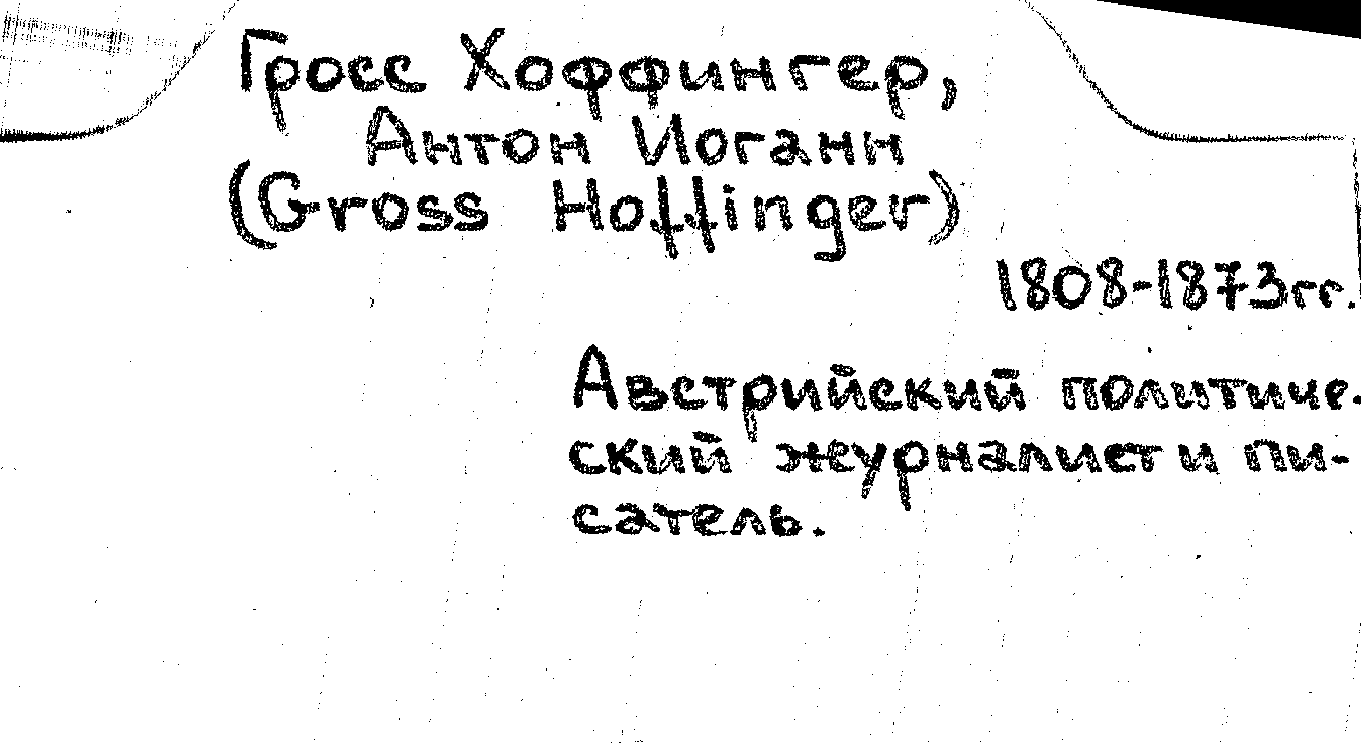 Гросс Хоффингер,
Антон Иоганн
(Gross Hoffinger)
1808-1873гг.
Австрийский политиче-
ский журналист и пи-
сатель.